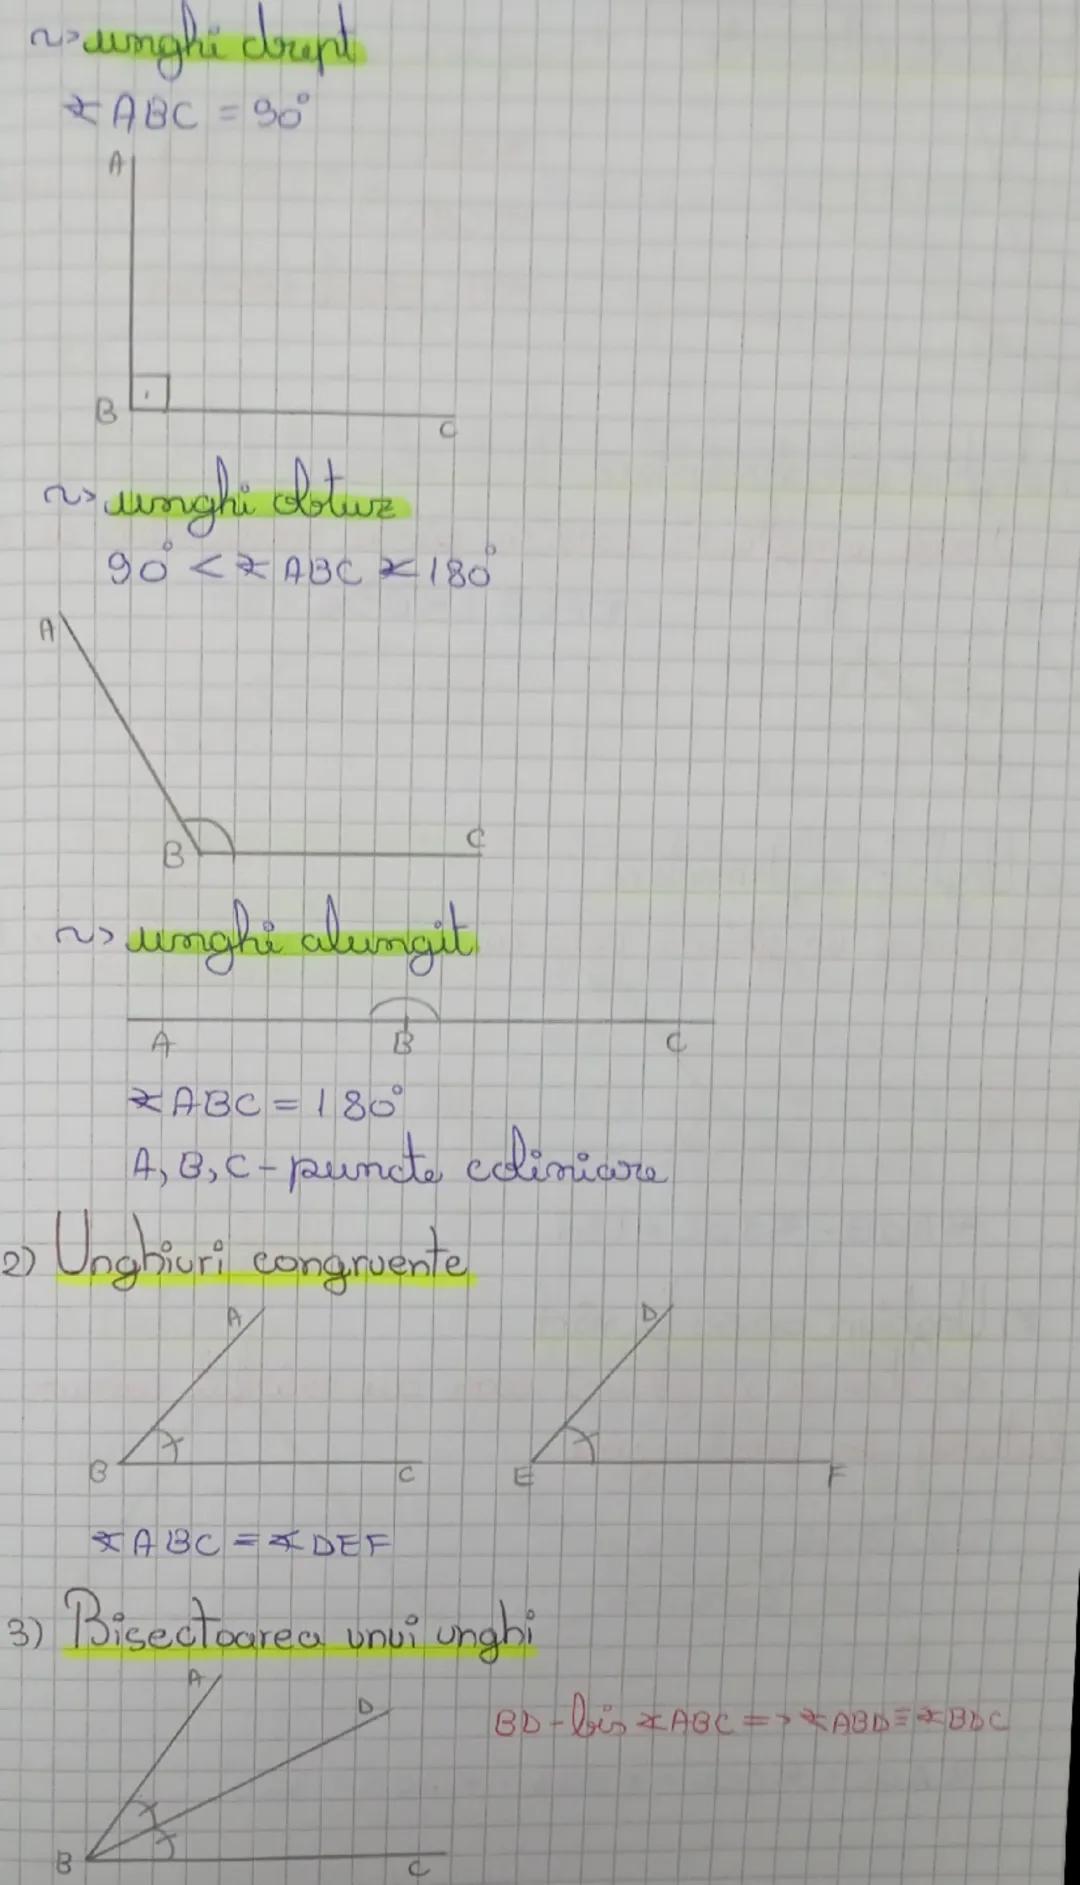 ~> unghi drept
∢ ABC = 90°
A
B
C
~> unghi obtuz
90° < ∢ ABC < 180°
A
B
C
~> unghi alungit
A B C
∢ ABC = 180°
A, B, C - puncte coliniare
2) Unghiuri congruente
A D
B C E F
∢ ABC ≡ ∢ DEF
3) Bisectoarea unui unghi
A D
BD - bis ∢ ABC => ∢ ABD ≡ ∢ BDC
B C